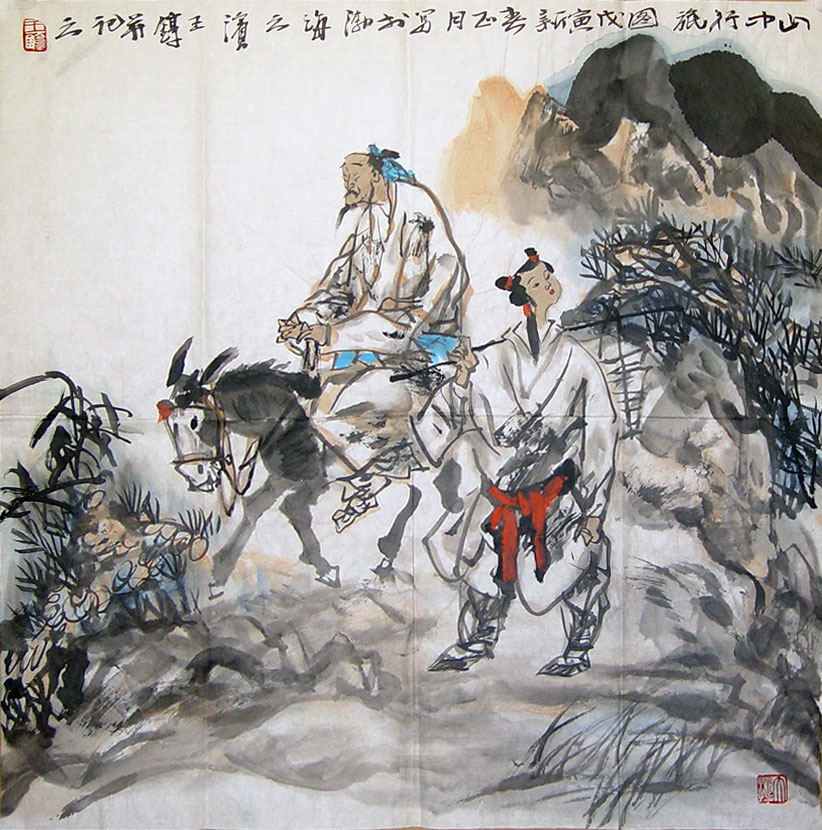 山中行旅图戊寅新春正月写於渤海之濱王记之